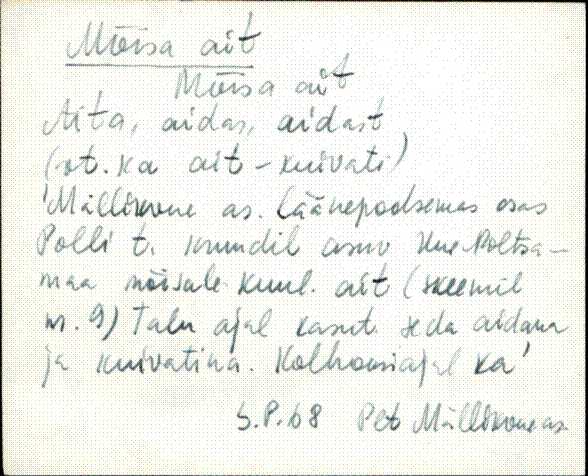 Mõisa ait
Mõisa ait
Aita, aidas, aidast
(vt. ka ait-kuivati)
'Mällikvere as. läänepoolsemas osas
Polli t. krundil asuv Uue-Põltsa-
maa mõisale kuul. ait (skeemil
nr. 9) Talu ajal kasut. seda aidana
ja kuivatina. Kolhoosiajal ka'
5.P.68 Plt Mällikvere as.